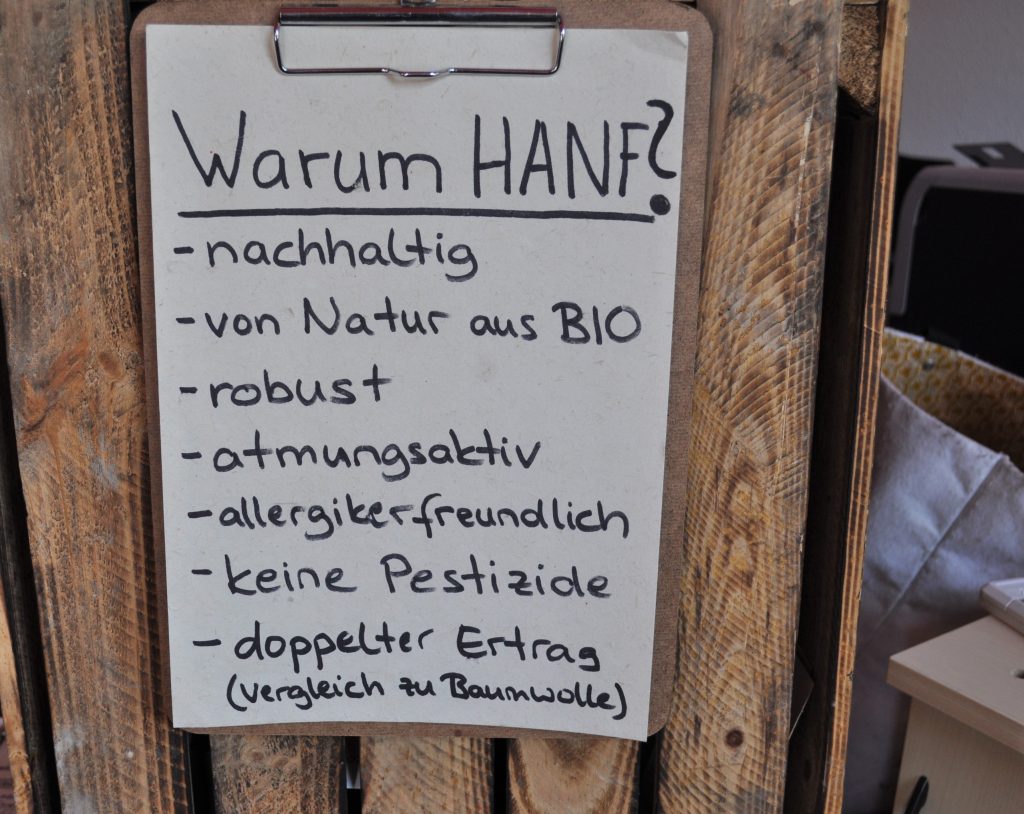 Warum HANF?
- nachhaltig
- von Natur aus BIO
- robust
- atmungsaktiv
- allergikerfreundlich
- keine Pestizide
- doppelter Ertrag
(vergleich zu Baumwolle)